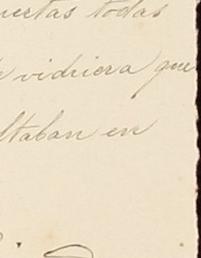 uertas todas
vidriera que
ltaban en